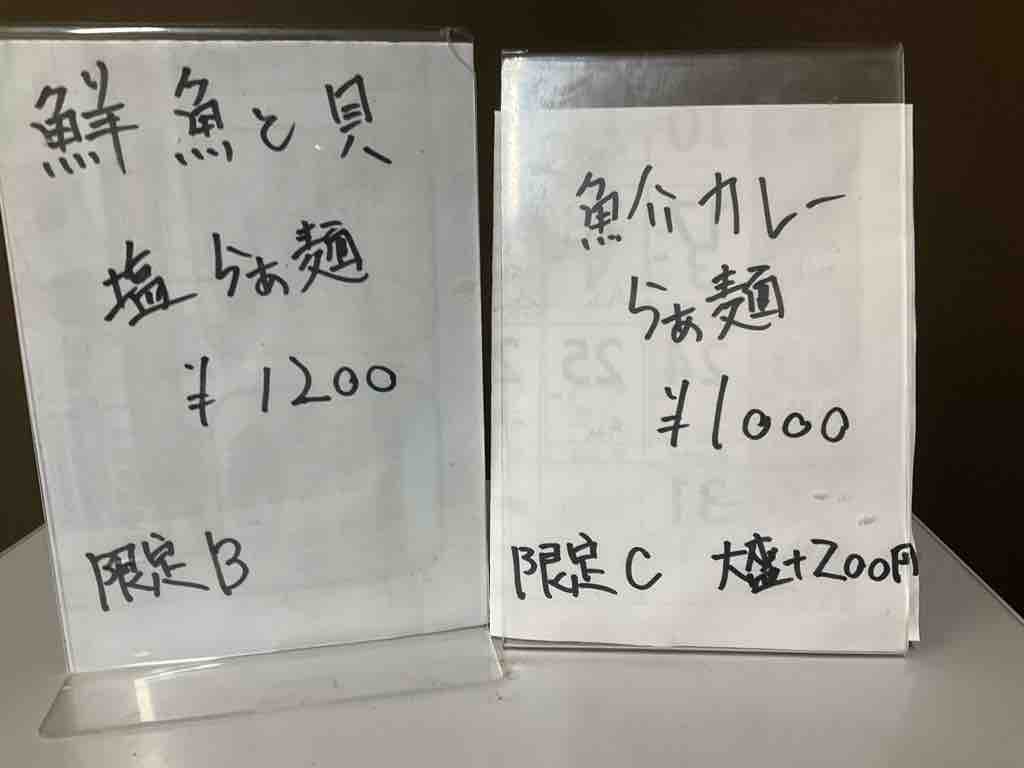 鮮魚と貝
塩らぁ麺
¥1200
限定B
魚介カレー
らぁ麺
¥1000
限定C 大盛+200円
10
24
25
31